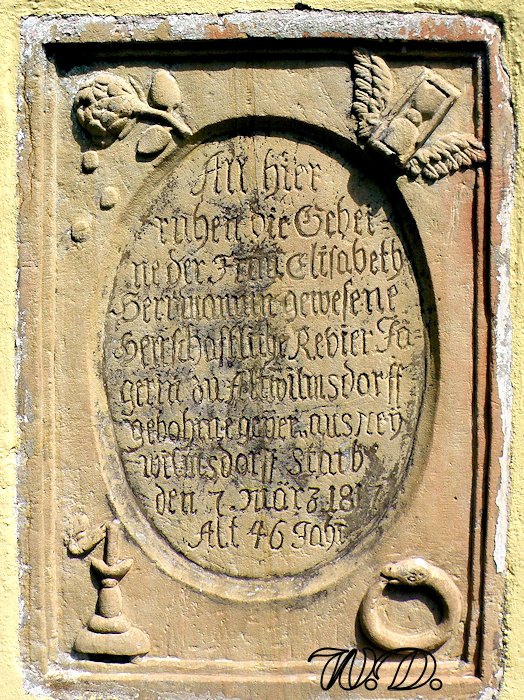 All hier
ruhen die Gebei-
ne der Frau Elisabeth
Herrmannin gewesene
Herrschaftliche Revier Jä-
gerin zu Altwilmsdorff
gebohrne geyer aus Ney
wilmsdorff Starb
den 7. märz 1817
Alt 46 Jahr
W.D.